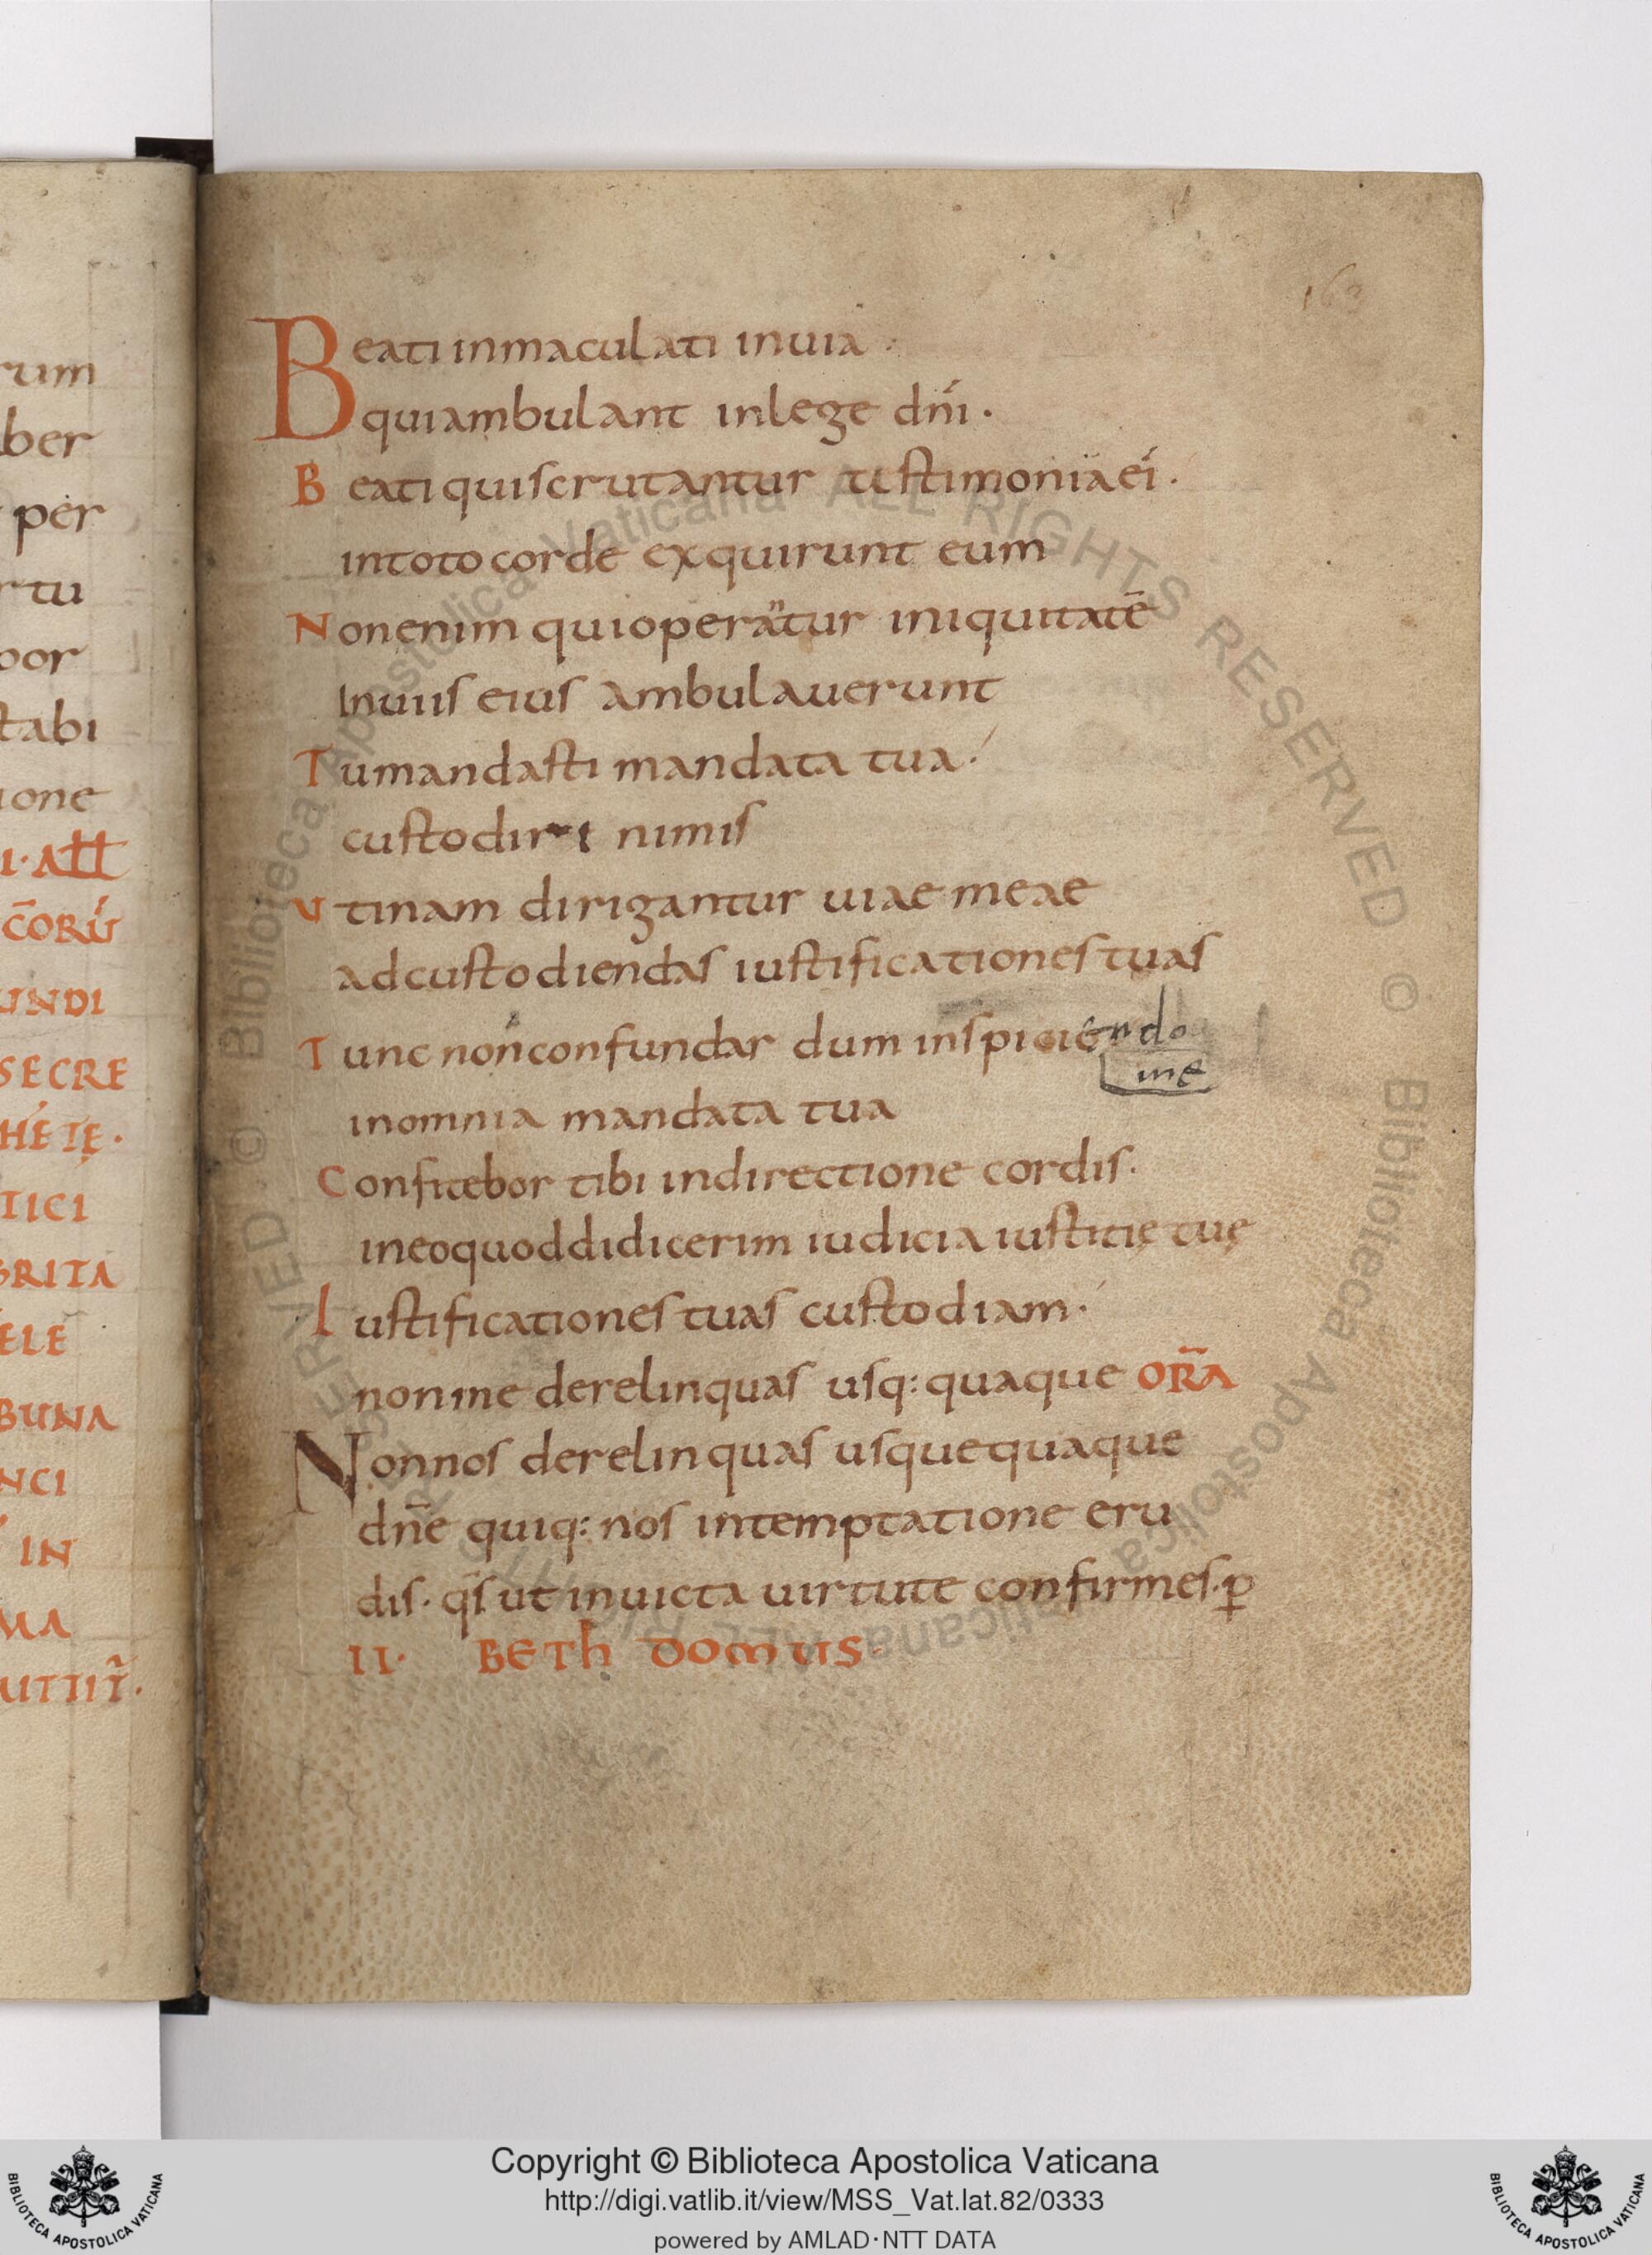 rum
ber
per
rtu
por
tabi
ione
I· ALL
C̄ORŪ
UNDI
SECRE
HETĘ·
TICI
BRITA
ELE
BUNA
NCI
IN
MA
UTTIT̃·
163
Beati inmaculati inuia·
qui ambulant inlege dn̄i·
Beati quiscrutantur testimonia ei·
intoto corde exquirunt eum
Nonenim quioperantur iniquitatē
Inuiis eius ambulauerunt
Tumandasti mandata tua·
custodiri nimis
Utinam dirigantur uiae meae
adcustodiendas iustificationes tuas
Tunc nonconfundar dum inspiciendo
me
inomnia mandata tua
Confitebor tibi indirectione cordis·
ineoquoddidicerim iudicia iustitię tuę
Iustificationes tuas custodiam·
nonme derelinquas usq: quaque OR̄A
Nonnos derelinquas usquequaque
dn̄e quiq: nos intemptatione eru
dis· q̄s ut inuicta uirtute confirmes· ꝑ
II· BETh DOMUS·
© Biblioteca Apostolica Vaticana ALL RIGHTS RESERVED © Biblioteca Apostolica Vaticana ALL RIGHTS RESERVED
Copyright © Biblioteca Apostolica Vaticana
http://digi.vatlib.it/view/MSS_Vat.lat.82/0333
powered by AMLAD·NTT DATA
BIBLIOTECA APOSTOLICA VATICANA
BIBLIOTECA APOSTOLICA VATICANA